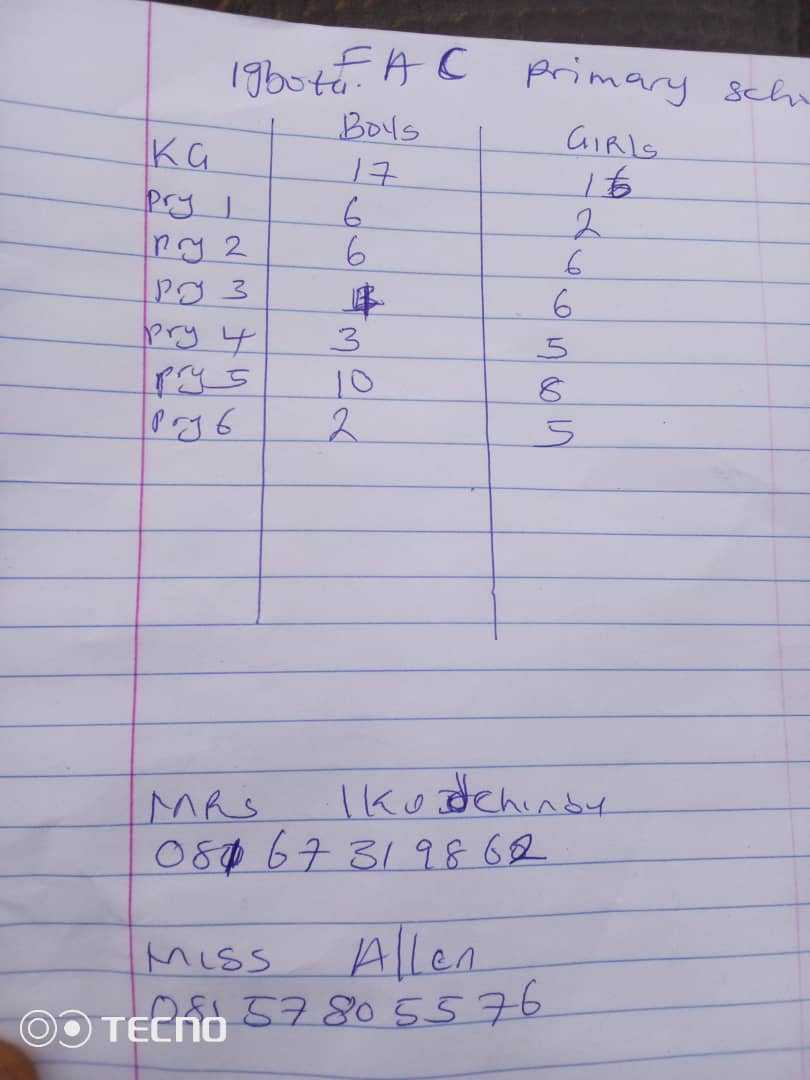 Igbota. FAC primary sch
Boys GIRLS
KG 17 16
Pry 1 6 2
Pry 2 6 6
Pry 3 6
Pry 4 3 5
Pry 5 10 8
Pry 6 2 5
MRS
081 67319862
MISS Allen
08157805576
TECNO